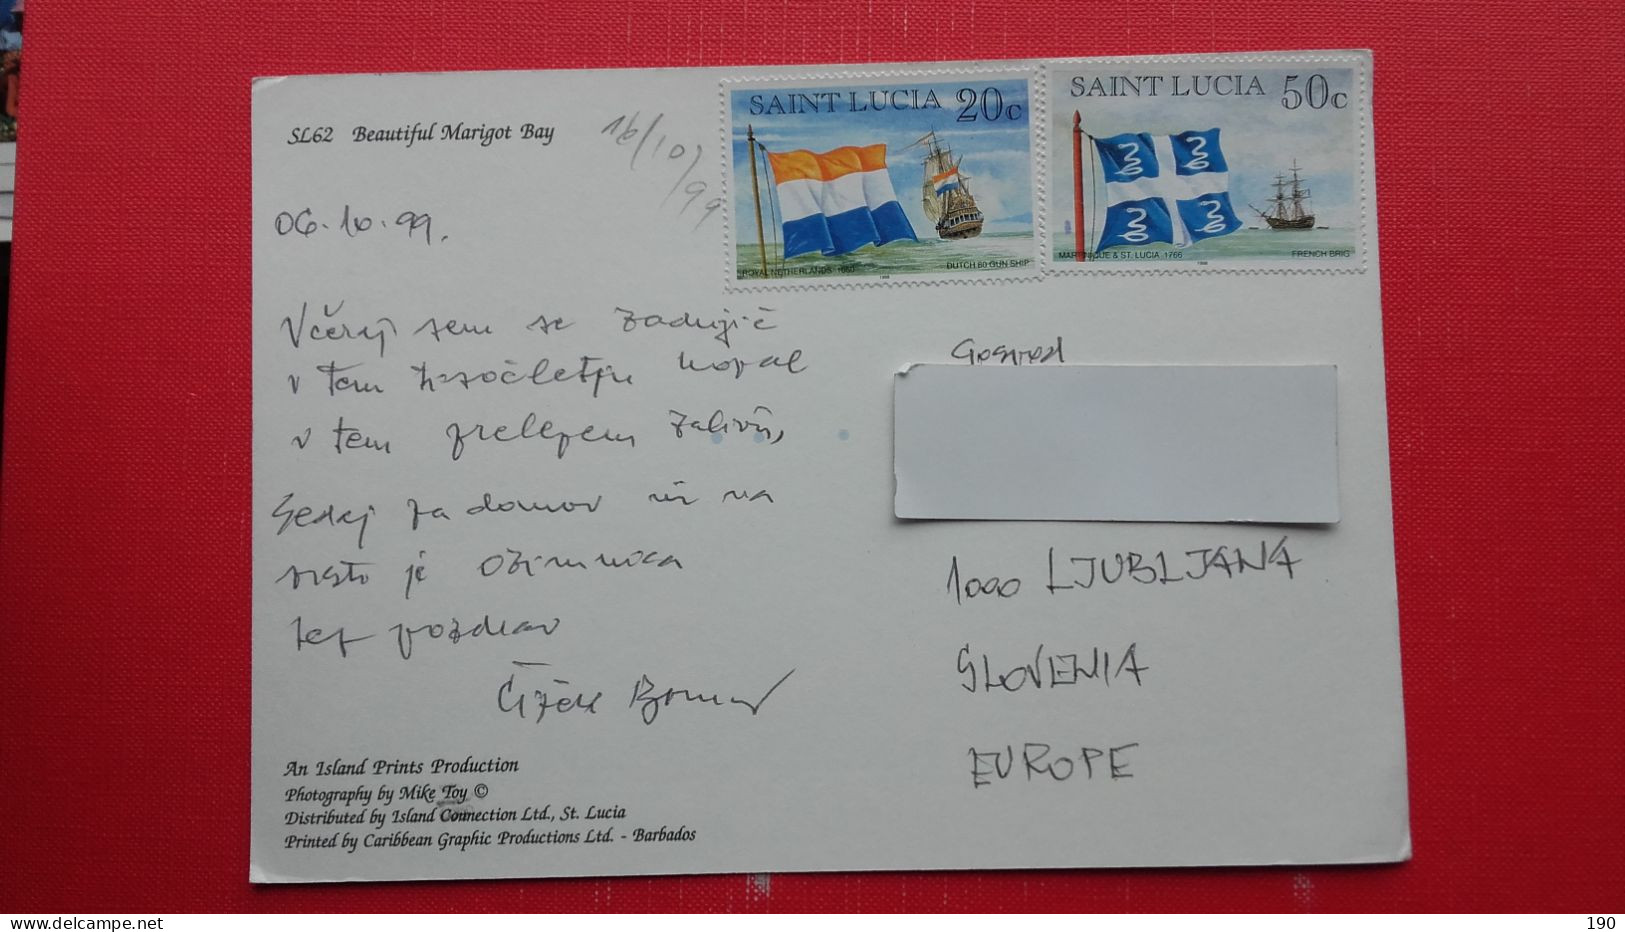 SAINT LUCIA 20c
ROYAL NETHERLANDS 1660 DUTCH 60 GUN SHIP
1996
SAINT LUCIA 50c
MARTINIQUE & ST. LUCIA 1766 FRENCH BRIG
1996
SL62 Beautiful Marigot Bay
16/10/99
06.10.99.
Včeraj sem se zadnjič
v tem tisočletju kopal
v tem prelepem zalivu,
sedaj pa domov kjer na
vrsti je ozimnica
lep pozdrav
Gospod
1000 LJUBLJANA
SLOVENIA
EUROPE
An Island Prints Production
Photography by Mike Toy ©
Distributed by Island Connection Ltd., St. Lucia
Printed by Caribbean Graphic Productions Ltd. - Barbados
190